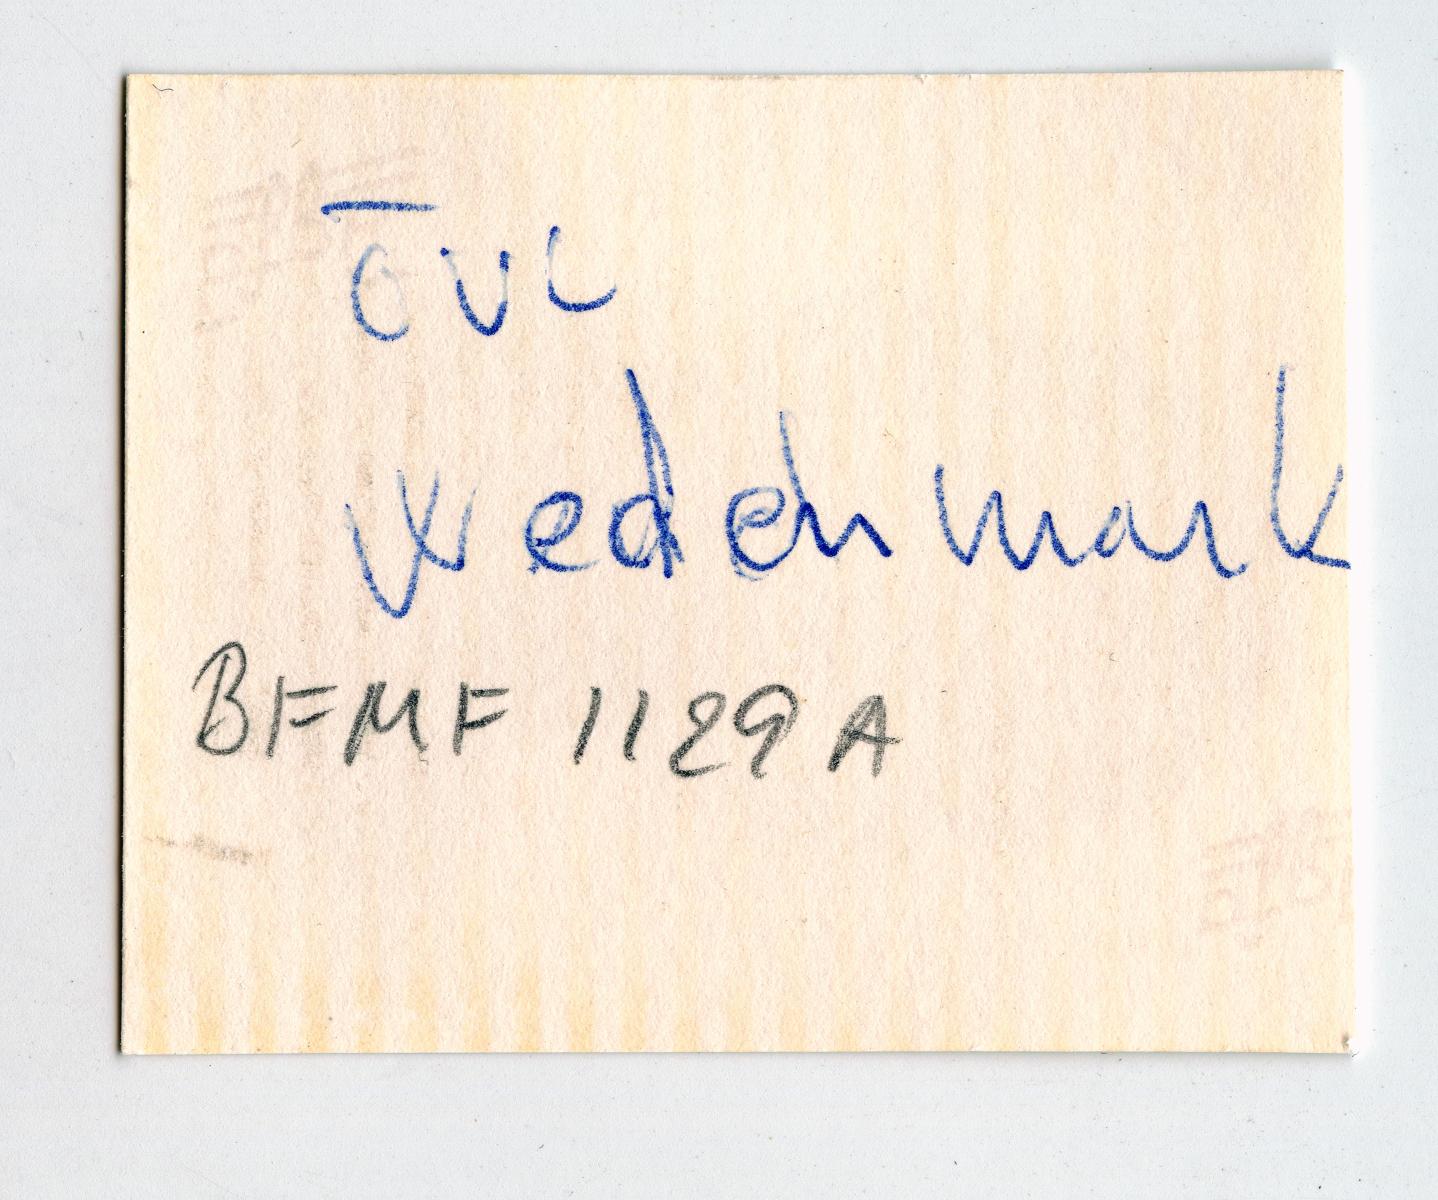 ŌVL
Wedenmark
BFMF 1129 A